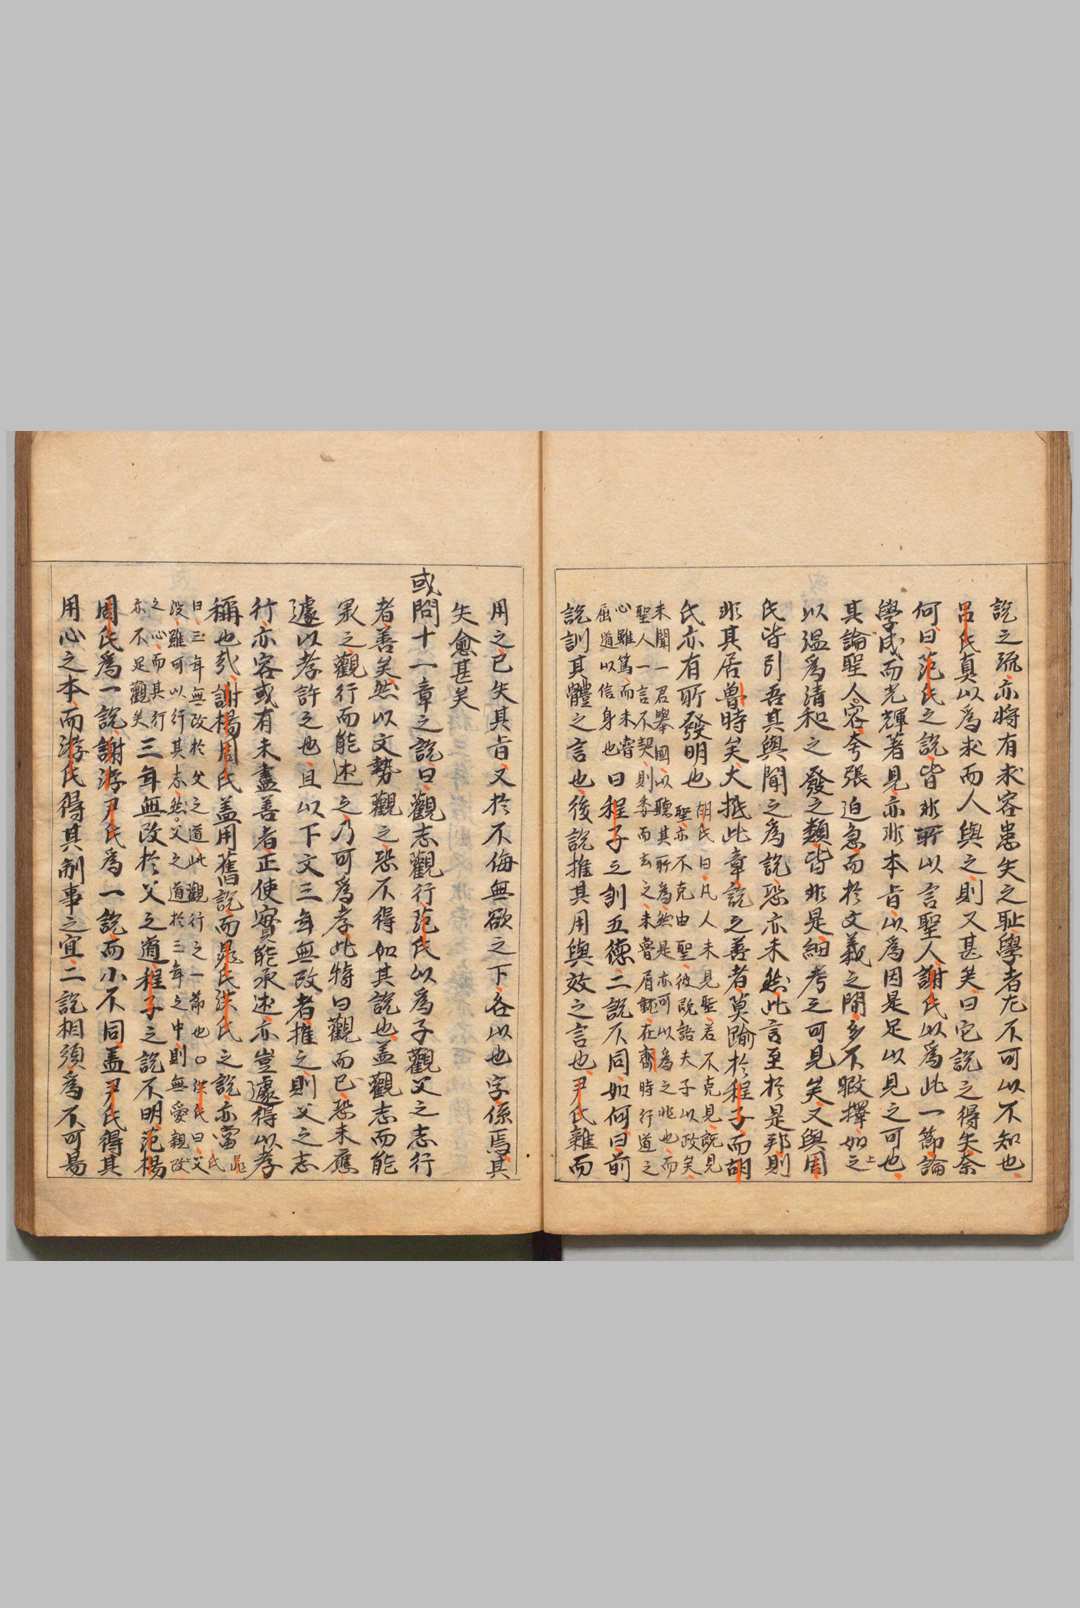 説之流亦將有求容患失之耻學者尤不可以不知也
呂氏真以為求而人與之則又甚矣曰它説之得失奈
何曰范氏之説皆非所以言聖人謝氏以為此一節論
學成而光輝著見亦非本旨以為因是足以見之可也
其論聖人容夸張迫急而於文義之間多不暇擇如之上
以温為清和之發之類皆非是細考之可見矣又與周
氏皆引吾其與聞之為説恐亦未然此言至於是邦則
非其居魯時矣大抵此章説之善者莫踰於程子而胡
氏亦有所發明也
胡氏曰凡人未見聖若不克見既見
聖亦不克由聖彼既語夫子以政矣
未聞一君舉國以聽其所為然是亦可以為之兆也而
聖人一言不契則委而去之未魯肩
在齊時行道之
心雖篤而未嘗
屈道以信身也
曰程子之訓五德二説不同如何曰前
説訓其體之言也後説推其用與效之言也尹氏雜而
用之已失其旨又於不侮無欲之下各以也字係焉其
失愈甚矣
或問十一章之説曰觀志觀行范氏以為子觀父之志行
者善矣然以文勢觀之恐不得如其説也蓋觀志而能
承之觀行而能述之乃可為孝此特曰觀而已恐未應
遽以孝許之也且以下文三年無改者推之則父之志
行亦容或有未盡善者正使實能承述亦豈遽得以孝
稱也哉謝楊周氏蓋用舊説而晁氏洪氏之説亦當
晁氏
曰三年無改於父之道此觀行之一節也〇洪氏曰父
没雖可以行其志然父之道於三年之中則無愛親改
之心而其行
亦不足觀矣
三年無改於父之道程子之説不明范楊
周氏為一説謝游尹氏為一説而小不同蓋尹氏得其
用心之本而游氏得其制事之宜二説相須為不可易